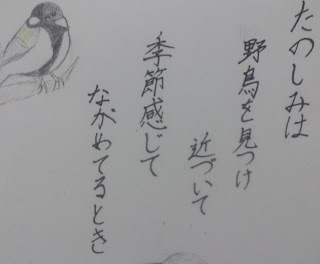 たのしみは
野鳥を見つけ
近づいて
季節感じて
ながめてるとき